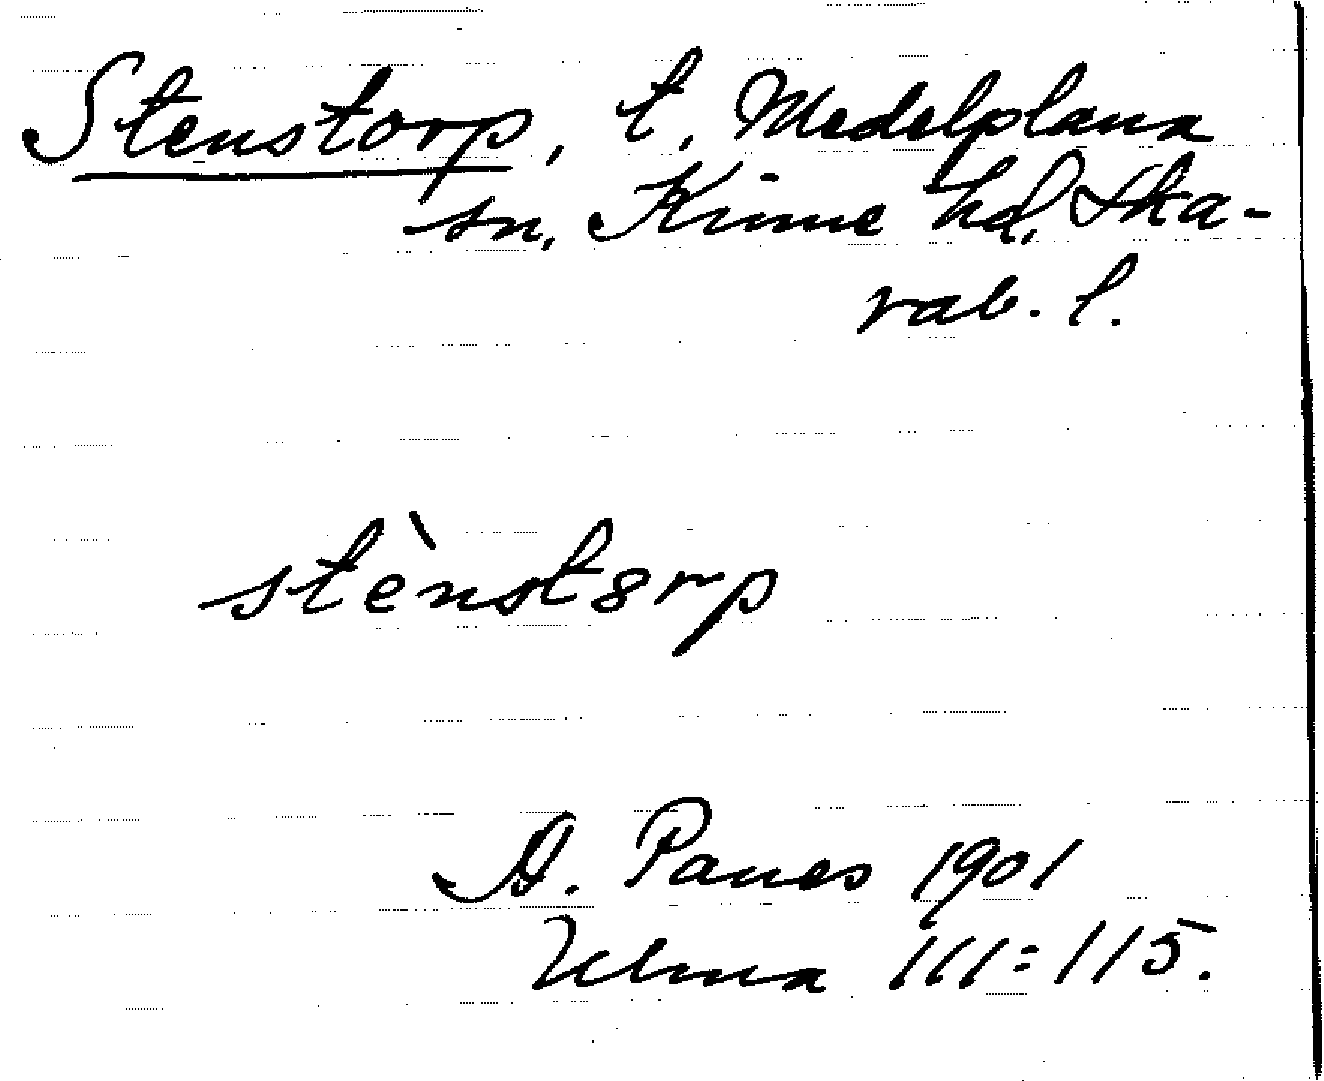 Stenstorp, t. Medelplana
sn, Kinne hd, Ska-
rab. l.
stènst8rp
A. Panes 1901
Ulma 111:115.